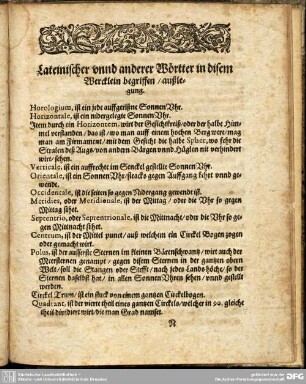 Lateinischer vnnd anderer Wörtter in disem
Wercklein begriffen / außle-
gung.
Horologium, ist ein jede auffgerißne Sonnen Vhr.
Horizontale, ist ein nidergelegte Sonnen Vhr.
Item durch ein Horizontem, wirt der Gesichtkreiß / oder der halbe Him-
mel verstanden / das ist / wo man auff einem hochen Berg were / mag
man am Firmament / mit dem Gesicht die halb Spher, wo fehr die
Stralen deß Augs / von andern Bärgen vnnd Häglen nit verhindert
wirt / sehen.
Verticale, ist ein auffrecht im Senckel gestellte Sonnen Vhr.
Orientale, ist ein Sonnen Vhr / stracks gegen Auffgang fehrt vnnd ge-
wendt.
Occidentale, ist die seiten so gegen Nidergang gewendt ist.
Meridies, oder Meridionale, ist der Mittag / oder die Vhr so gegen
Mittag sihet.
Septentrio, oder Septentrionale, ist die Mittnacht / oder die Vhr so ge-
gen Mittnacht sihet.
Centrum, ist der Mittel punct / auß welchem ein Circkel Bogen gzogen
oder gemacht wirt.
Polus, ist der ausserste Sternen im kleinen Bärenschwantz / wirt auch der
Meersternen genampt / gegen disem Sternen in der gantzen obern
Welt / soll die Stangen oder Stefft / nach jedes Lands höche / so der
Sternen daselbst hat / in allen Sonnen Vhren sehen / vnnd gestellt
werden.
Circkel Trum / ist ein stuck von einem gantzen Circkelbogen.
Quadrant, ist der vierte theil eines gantzen Circkels / welcher in 90. gleiche
theil dividiert wirt / die man Grad namset.
N